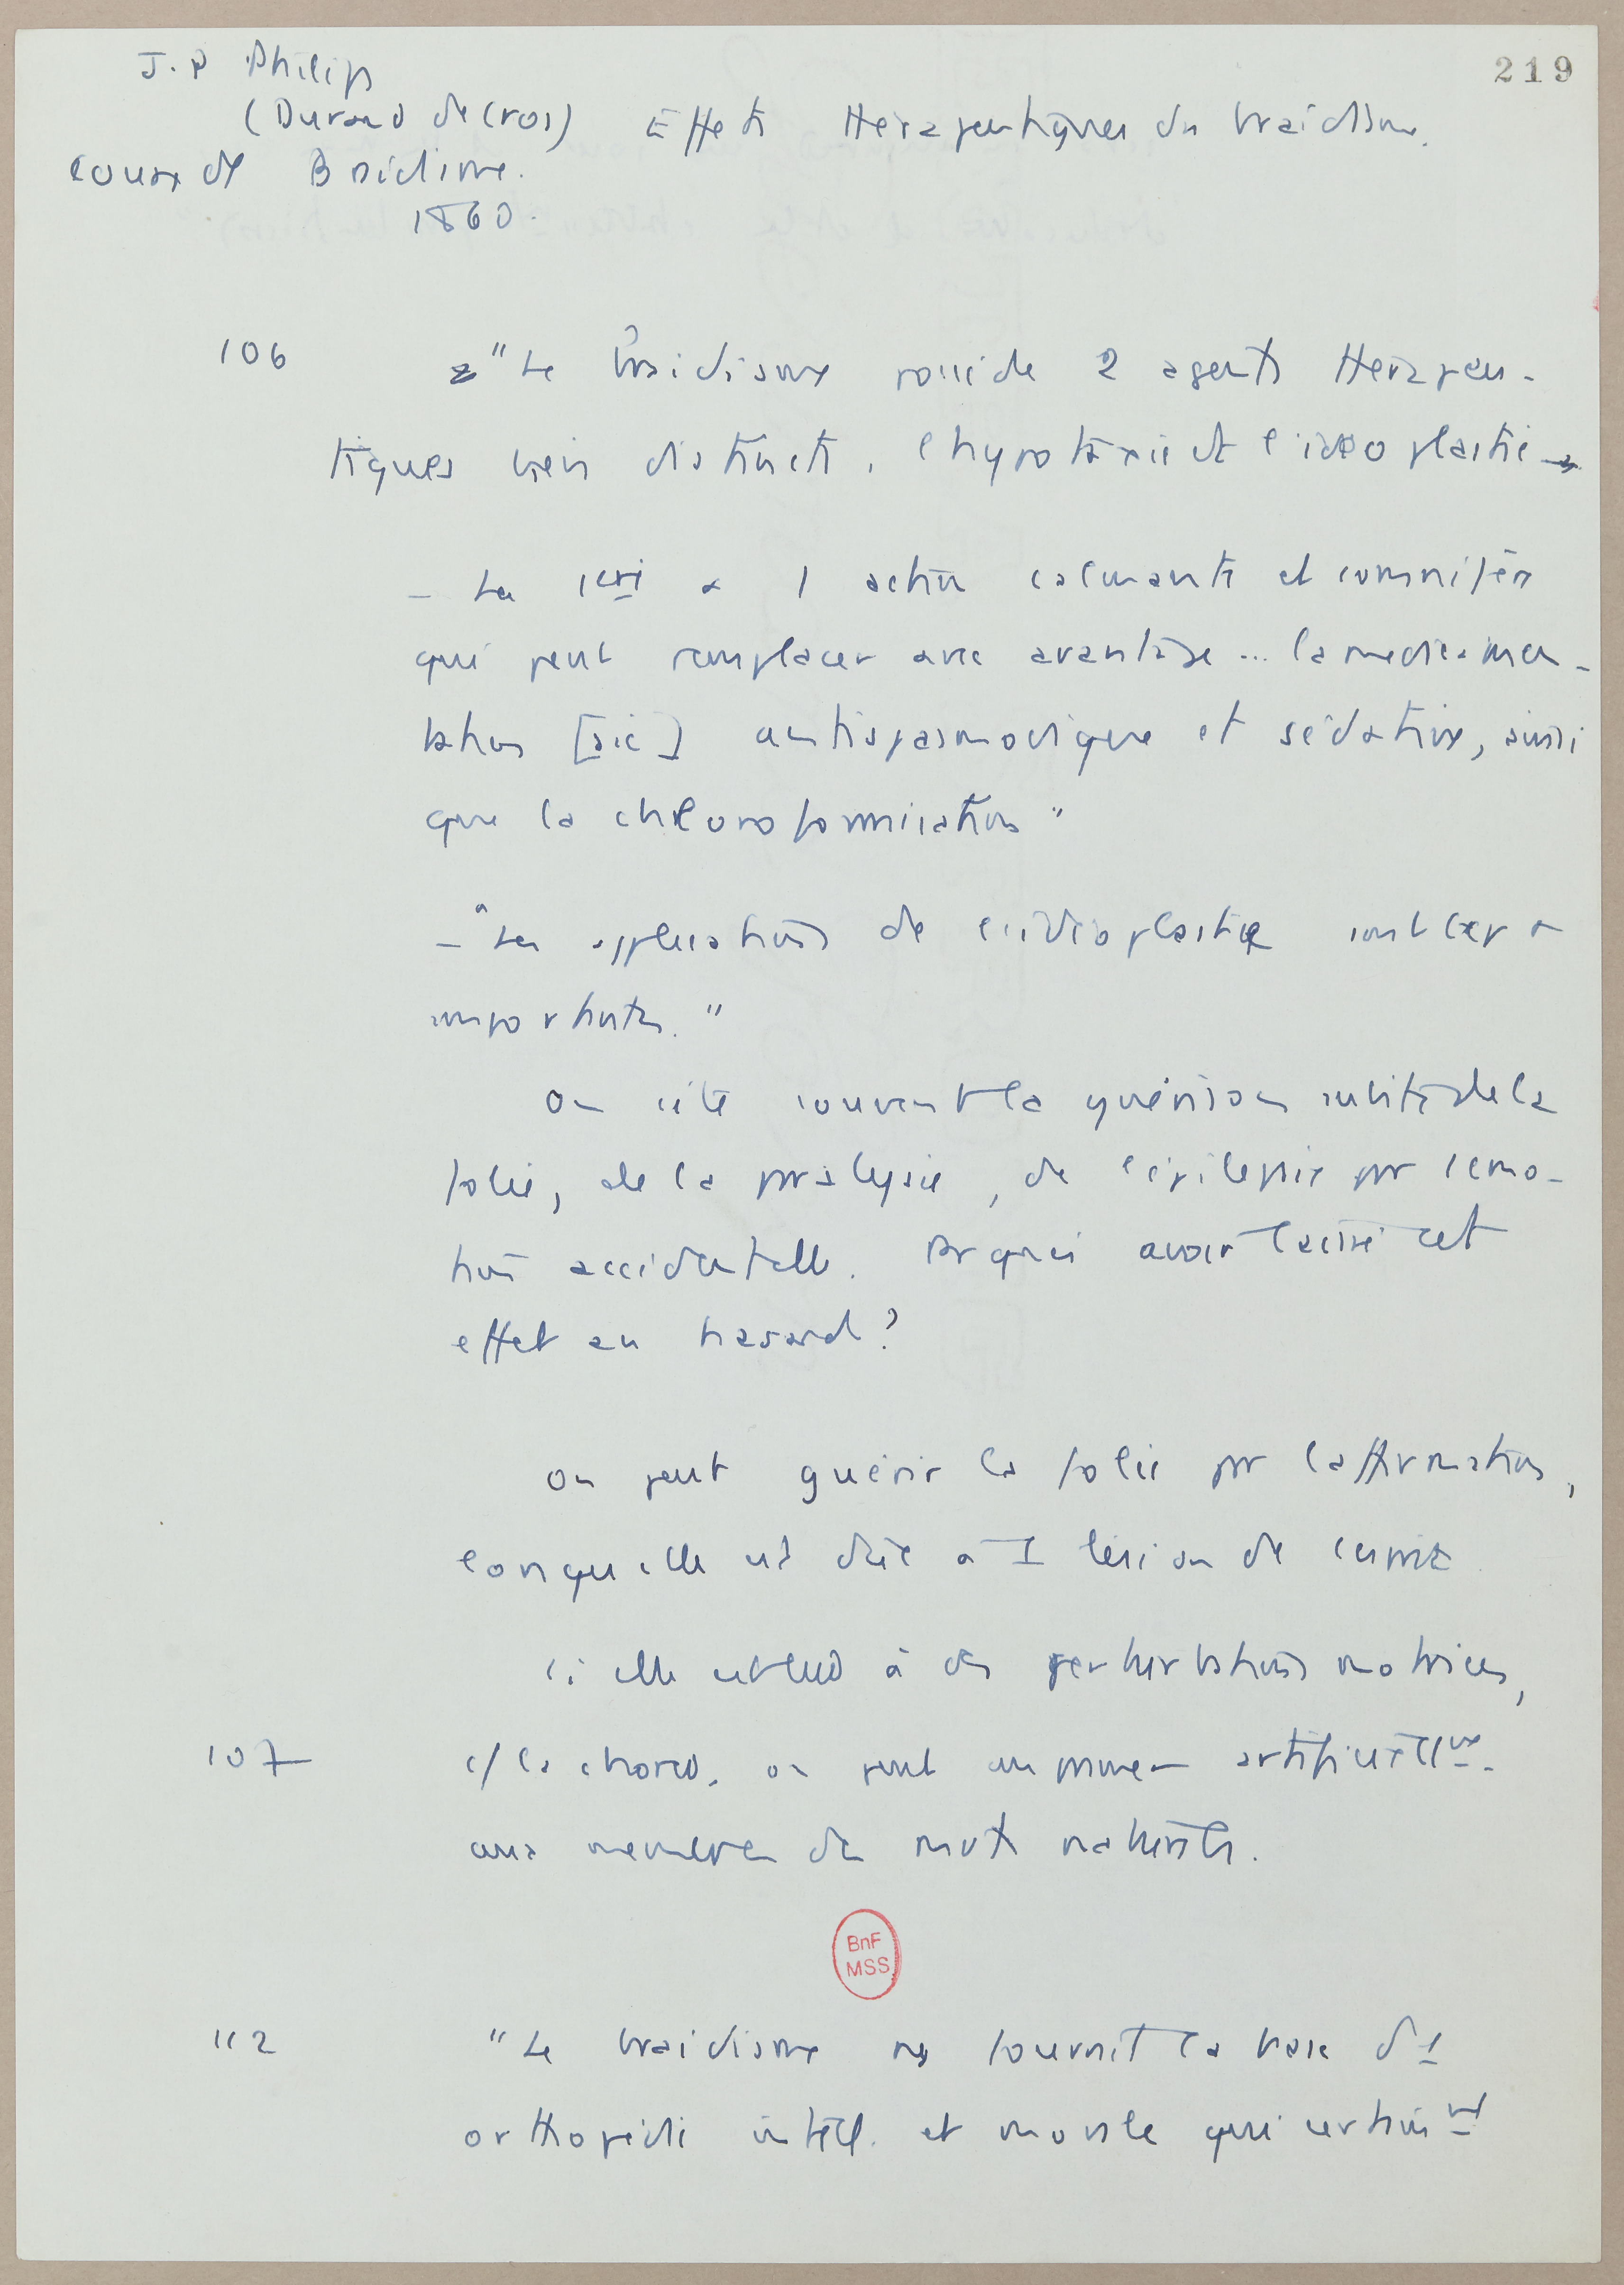 219
J. P Philips
(Durand de Gros) Effets thérapeutiques du braidisme.
Cours de Braidisme.
1860.
106 "Le braidisme possède 2 agents thérapeu-
tiques bien distincts, l'hypotaxie et l'idéoplastie
– La 1ère a 1 action calmante et somnifère
qui peut remplacer avec avantage ... la médicamen-
tation [sic] antispasmodique et sédative, ainsi
que la chloroformisation"
– "Les applications de l'idéoplastie sont
importantes."
On cite souvent la guérison subite de la
folie, de la paralysie, de l'épilepsie par l'émo-
tion accidentelle. Pr quoi avoir laissé cet
effet au hasard?
On peut guérir la folie par l'affirmation,
lorsqu'elle est due à 1 lésion de l'esprit
Si elle est due à des perturbations motrices,
107 c/ la chorée, on peut imprimer artificiellemt.
aux membres des mvts naturels.
BnF
MSS
112 "Le braidisme ns fournit la base d'1
orthopédie intell. et morale qui certainemt